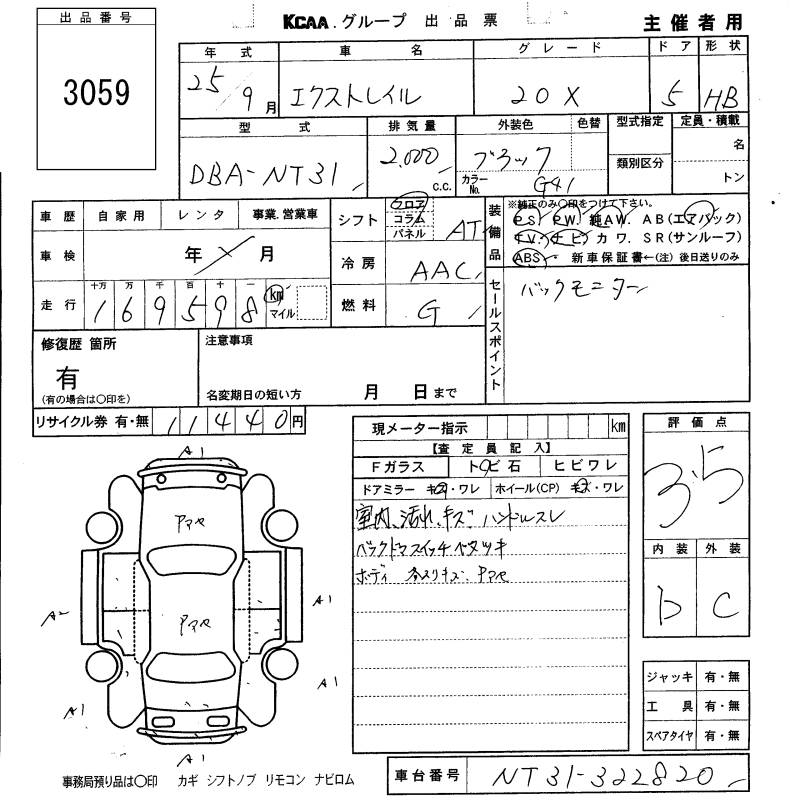 出品番号
3059
KCAA.グループ 出品票
主催者用
年式 車名 グレード ドア 形状
25/9月 エクストレイル 20X 5 HB
型式 排気量 外装色 色替 型式指定 定員・積載
DBA-NT31 2,000 c.c. ブラック
カラーNo. G41
類別区分
名
トン
車歴 自家用 レンタ 事業.営業車
車検 年 月
走行 十万 万 千 百 十 一
169598 km マイル
シフト フロア コラム パネル AT
冷房 AAC
燃料 G
装備品
※純正のみ〇印をつけて下さい。
PS. PW. 純AW. AB(エアバック)
TV. ナビ カワ. SR(サンルーフ)
ABS 新車保証書←(注)後日送りのみ
セールスポイント
バックモニター
修復歴 箇所
有
(有の場合は〇印を)
注意事項
名変期日の短い方 月 日まで
リサイクル券 有・無 11440円
現メーター指示 km
【査定員記入】
Fガラス トビ石 ヒビワレ
ドアミラー キズ・ワレ ホイール(CP) キズ・ワレ
室内、汚れ、キズ ハンドルスレ
バックドアスイッチベタツキ
ボディ
評価点
3.5
内装 外装
D C
A1
アマセ
アマセ
A2
A1
A1
A1
A1
ジャッキ 有・無
工具 有・無
スペアタイヤ 有・無
事務局預り品は〇印 カギ シフトノブ リモコン ナビロム
車台番号 NT31-322820